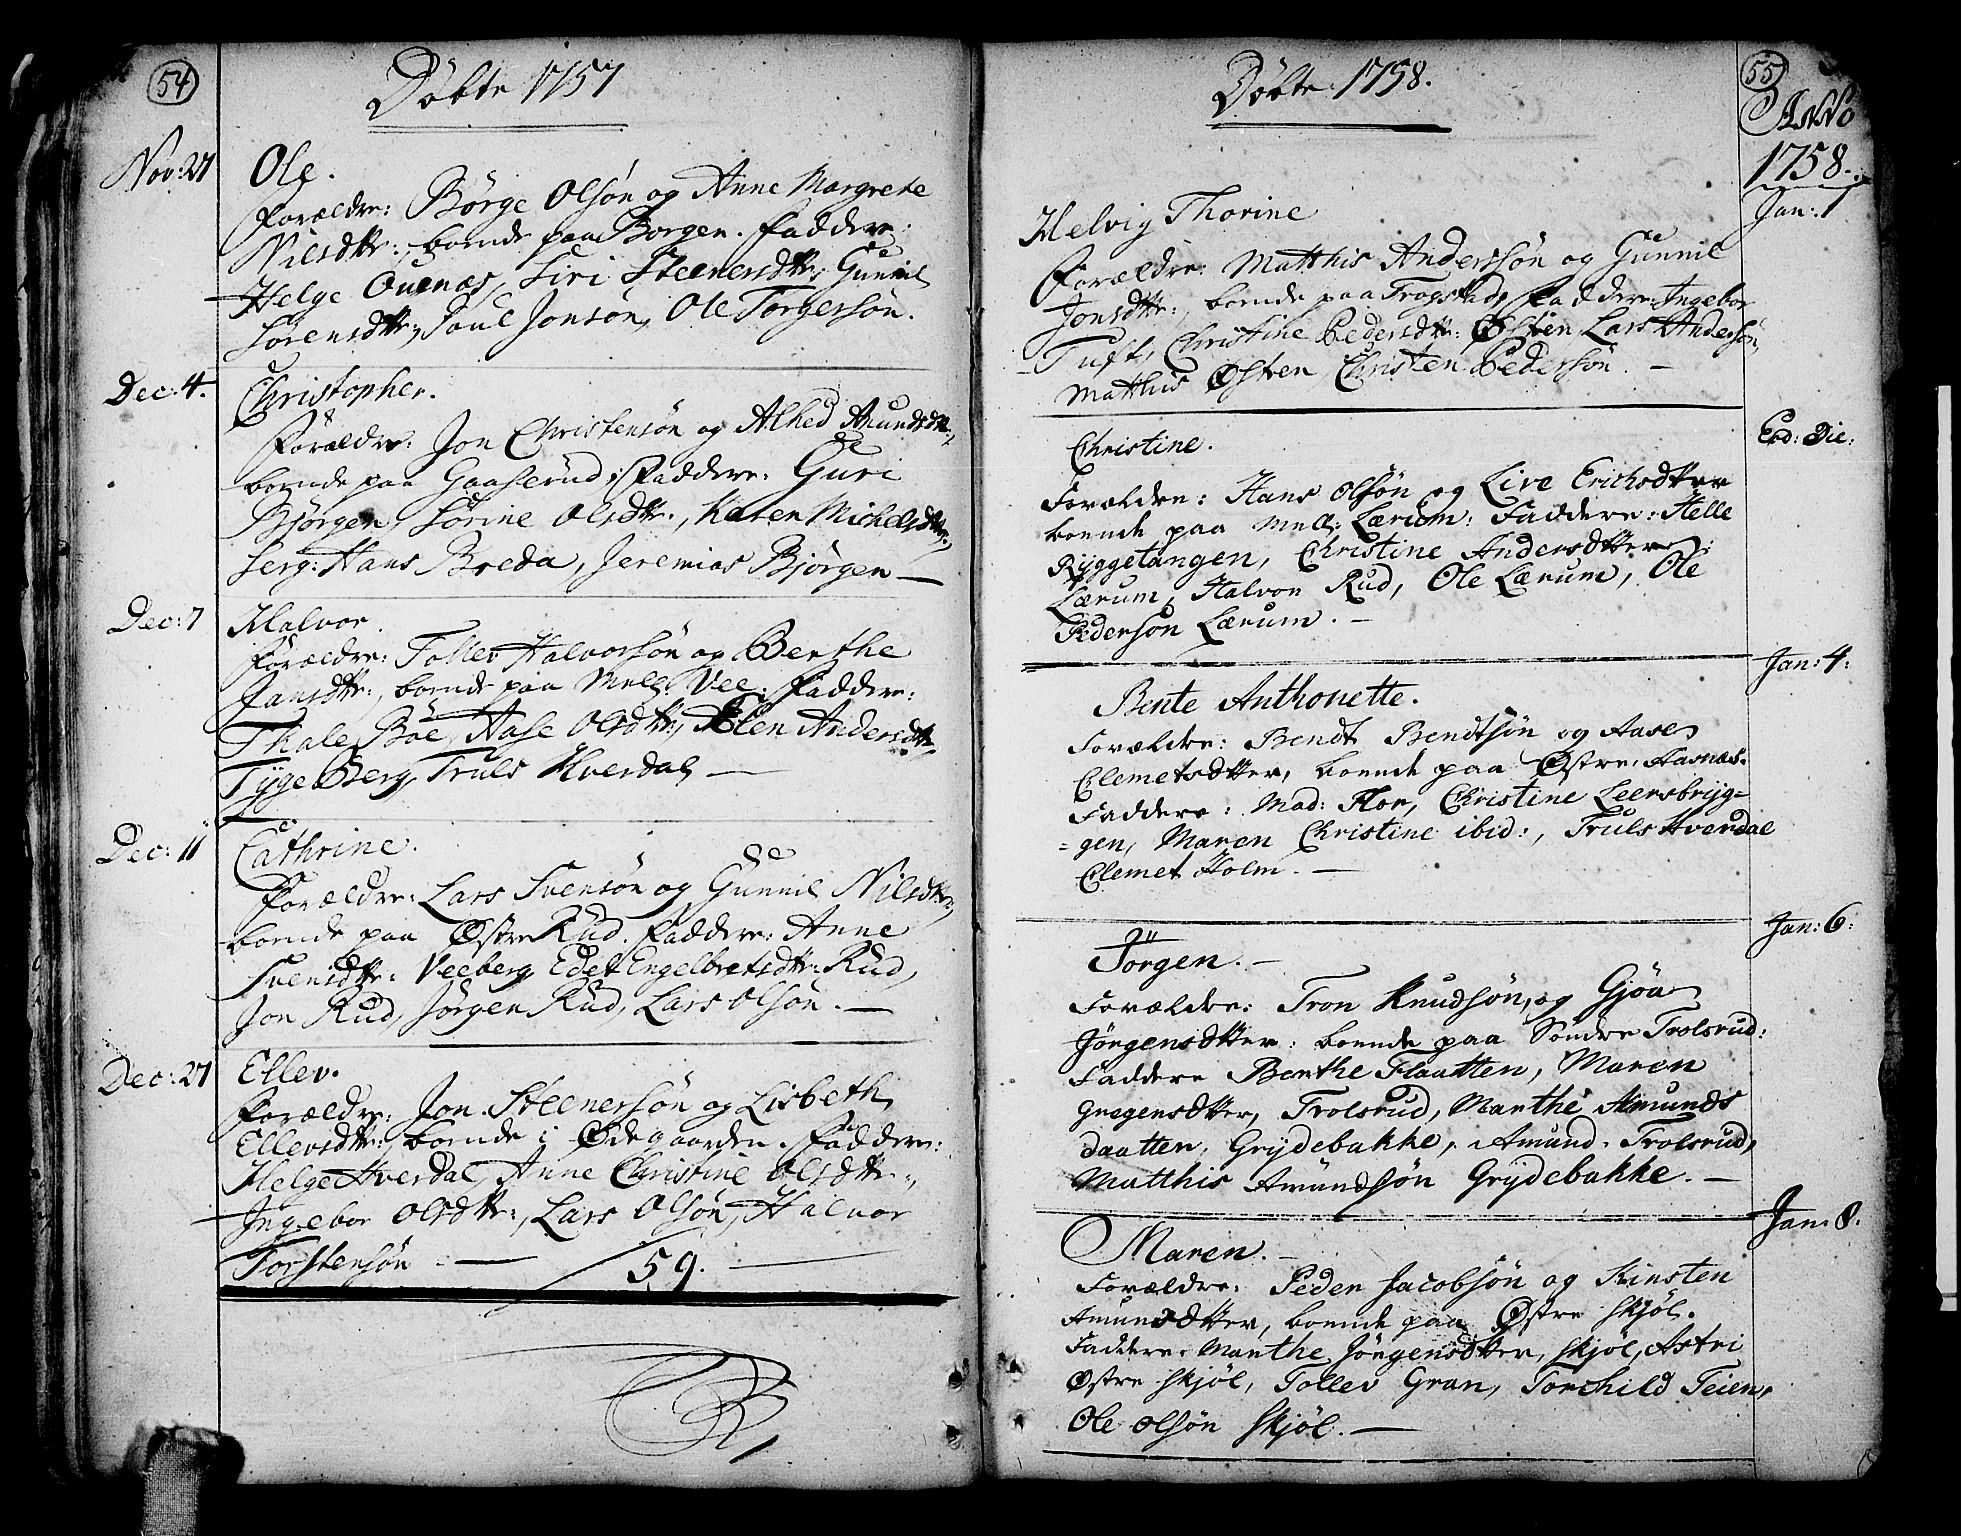 54
Döbte 1757
Nov: 27
Ole.
Forældre: Börge Olsön og Anne Margrete
Nilsdtr:, boende paa Borgen. Faddere:
Helge Ouenæs, Siri Steenersdtr, Gunnil
Sörensdtr, Poul Jonsön, Ole Torgersön.
Dec: 4.
Christopher.
Forældre: Jon Christensön og Alhed Amundsdtr,
boende paa Gaaserud; Faddere: Guri
Björgen, Sörine Olsdtr., Karen Michelsdtr,
Serg: Hans Breda, Jeremias Björgen —
Dec: 7
Halvor.
Forældre: Tollev Halvorsön og Berthe
Jansdtr:, boende paa Mell: Vee: Faddere:
Thale Böe, Aase Olsdtr:, Elen Andersdtr,
Tyge Berg, Truls Hverdal —
Dec: 11
Cathrine.
Forældre: Lars Svensön og Gunnil Nilsdtr,
boende paa Østre Rud. Faddere: Anne
Svensdtr: Veeberg, Edet Engelbretsdtr: Rud,
Jon Rud, Jörgen Rud, Lars Olsön. —
Dec: 27
Ellev.
Forældre: Jon Steenersön og Lisbeth
Ellevsdtr: boende i Ødegaarden. Faddere:
Helge Hverdal, Anne Christine Olsdtr.,
Ingebor Olsdtr:, Lars Olsön, Halvor
Torstensön — 59. —
55
Döbte 1758.
Anno
1758.
Jan: 1
Helvig Thorine
Forældre: Matthis Andersön og Gunnil
Jonsdtr:, boende paa Frogstad; Faddere: Ingebor
Tuft, Christine Pedersdtr: Østen, Lars Andersön,
Matthis Østen, Christen Pedersön. —
Eod: Die:
Christine.
Forældre: Hans Olsön og Live Erichsdtter
boende paa Mell: Lærum: Faddere: Helle
Ryggetangen, Christine Andersdtter:
Lærum, Halvor Rud, Ole Lærum, Ole
Pedersön Lærum. —
Jan: 4:
Bente Anthonette.
Forældre: Bendt Bendtsön og Aase
Clemetsdtter, boende paa Østre: Aasnæs.
Faddere: Mad: Flor, Christine Leersbryg-
-gen, Maren Christine ibid:, Truls Hverdal
Clemet Holm. —
Jan: 6:
Jörgen. —
Forældre: Tron Knudsön, og Gjöa
Jörgensdtter: boende paa Söndre Trolsrud:
Faddere Berthe Flaatten, Maren
Gregersdtter, Trolsrud, Marthe Amunds
daatter, Grydebakke, Amund Trolsrud,
Matthis Amundsön Grydebakke. —
Jan: 8.
Maren. —
Forældre: Peder Jacobsön og Kirsten
Amundsdtter, boende paa Østre Skjöl.
Faddere: Marthe Jörgensdtter, Skjöl, Astri
Østre Skjöl, Tollev Gran, Torchild Teien,
Ole Olsön Skjöl. —